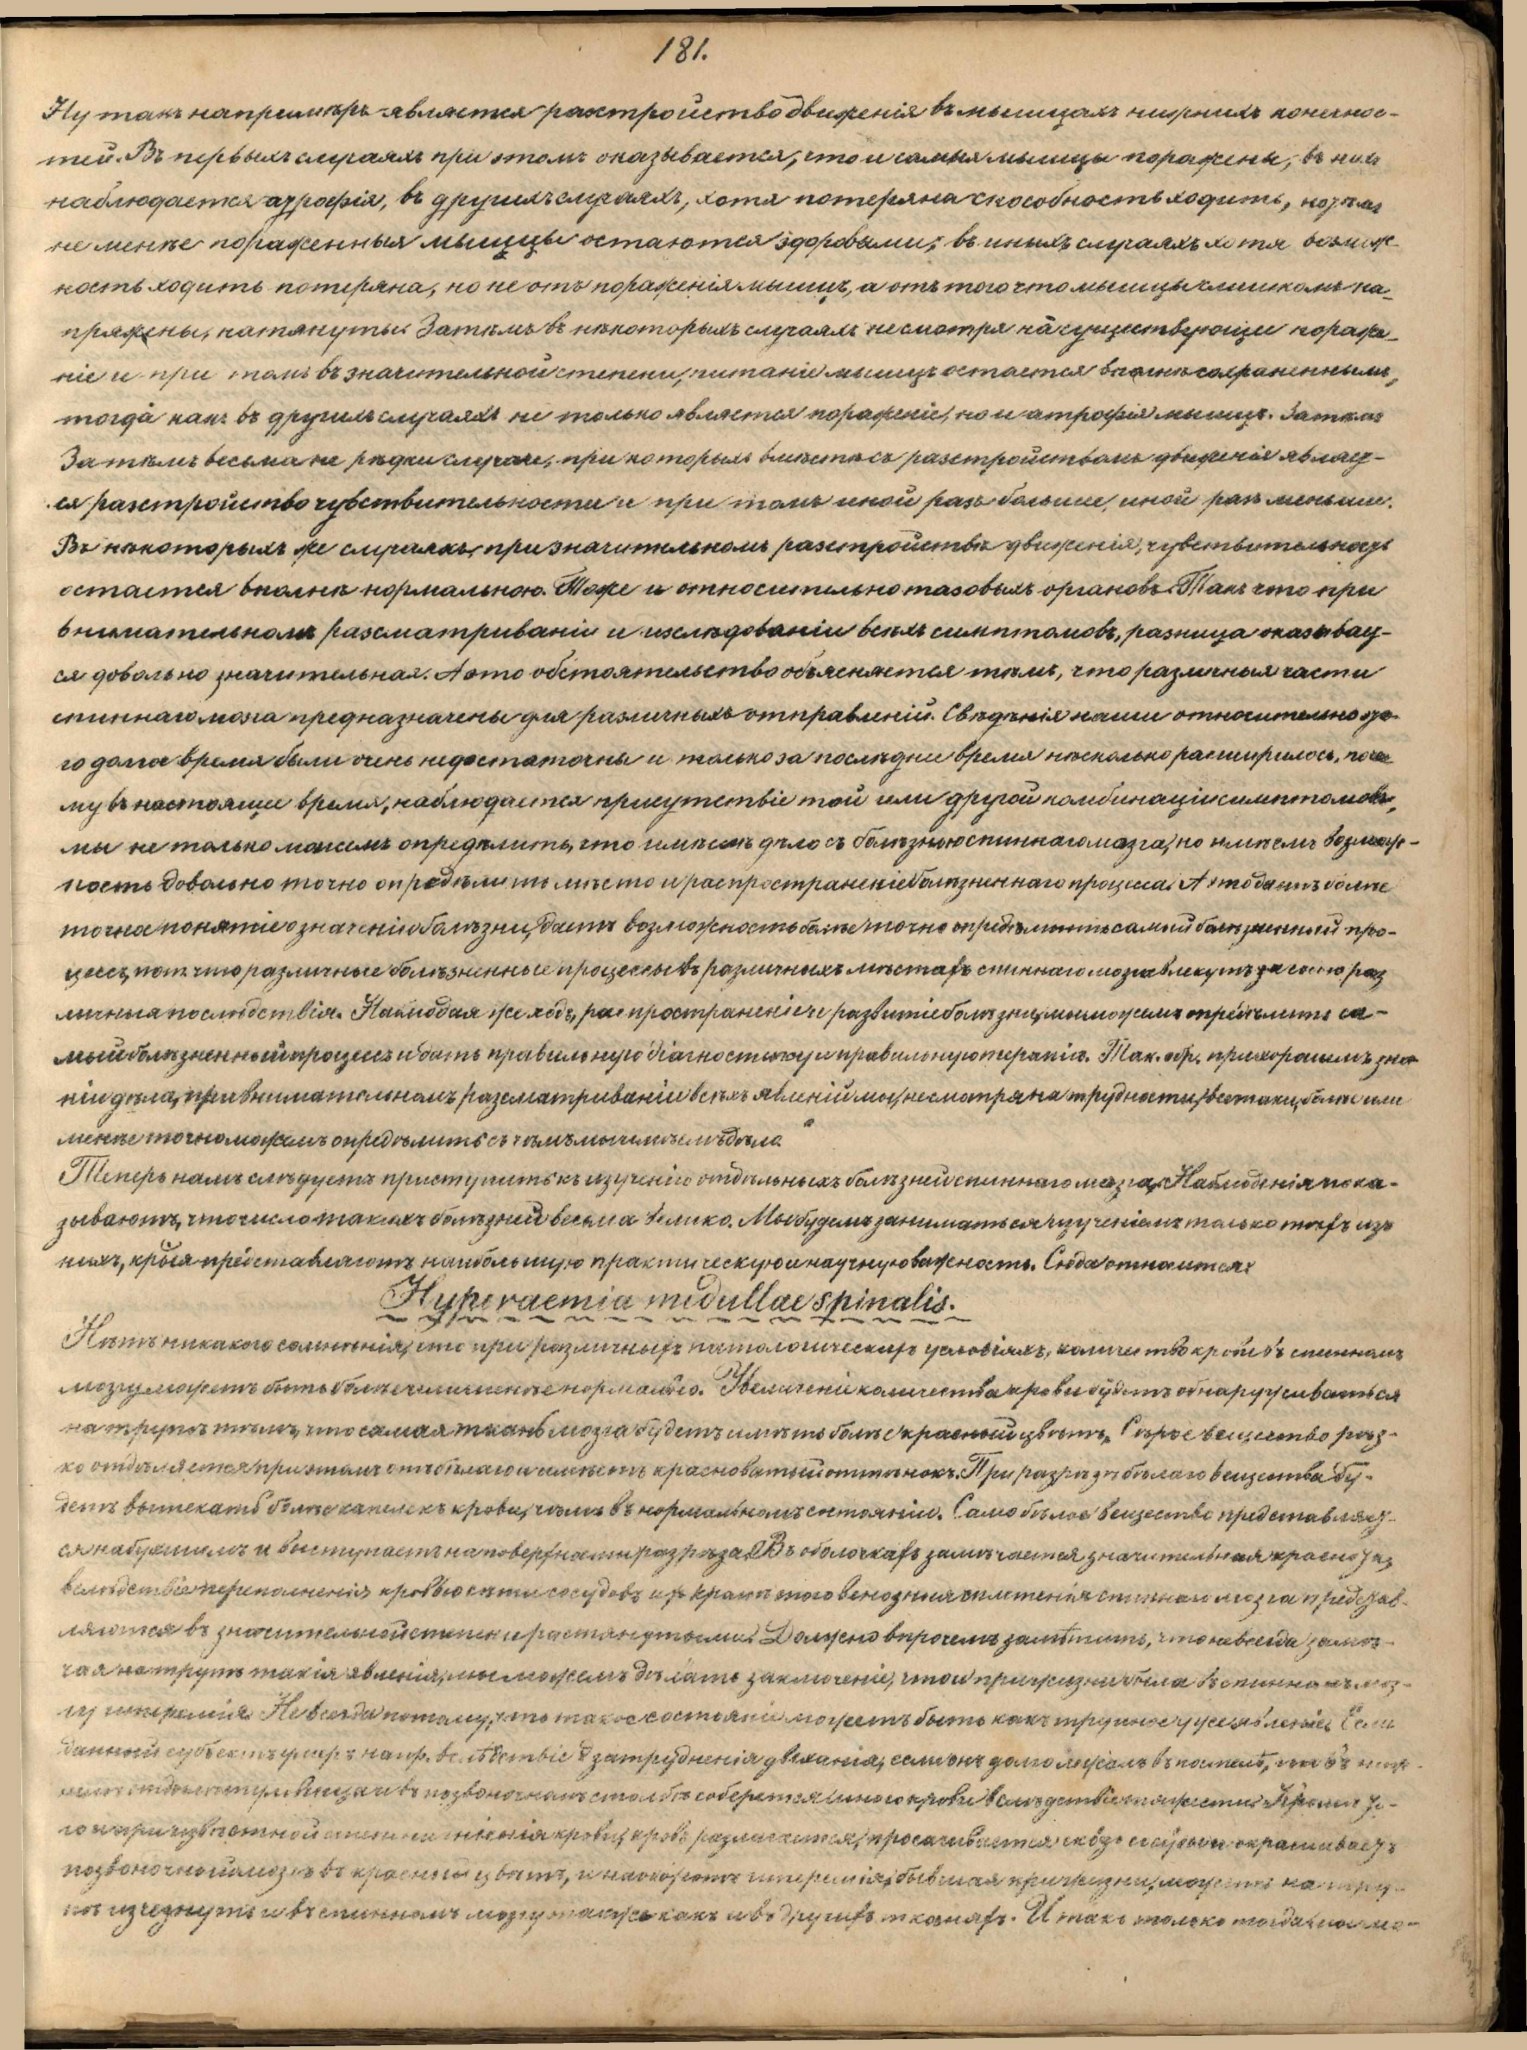 181.
Ну такъ напримѣръ является разстройство движенія въ мышцахъ нижнихъ конечнос-
тей. Въ первыхъ случаяхъ при этомъ оказывается, что и самыя мышцы поражены, въ нихъ
наблюдается атрофія, въ другихъ случаяхъ, хотя потеряна способность ходить, но тѣмъ
не менѣе пораженныя мышцы остаются здоровыми; въ иныхъ случаяхъ хотя возмож-
ность ходить потеряна, но не отъ пораженія мышцъ, а отъ того что мышцы слишкомъ на-
пряжены, натянуты. Затѣмъ въ нѣкоторыхъ случаяхъ не смотря на существующее пораже-
ніе и при томъ въ значительной степени, питаніе мышцъ остается вполнѣ сохраненнымъ,
тогда какъ въ другихъ случаяхъ не только является пораженіе, но и атрофія мышцъ. Затѣмъ
Затѣмъ весьма не рѣдки случаи, при которыхъ вмѣстѣ съ разстройствомъ движенія являет-
ся разстройство чувствительности и при томъ иной разъ больше, иной разъ меньше.
Въ нѣкоторыхъ же случаяхъ, при значительномъ разстройствѣ движенія, чувствительность
остается вполнѣ нормальною. Тоже и относительно тазовыхъ органовъ. Такъ что при
внимательномъ разсматриваніи и изслѣдованіи всѣхъ симптомовъ, разница оказывает-
ся довольно значительная. А это обстоятельство объясняется тѣмъ, что различныя части
спиннаго мозга предназначены для различныхъ отправленій. Свѣдѣнія наши относительно это-
го долгое время были очень недостаточны и только за послѣднее время нѣсколько расширились, поче
му въ настоящее время, наблюдается присутствіе той или другой комбинаціи симптомовъ,
мы не только можемъ опредѣлить, что имѣемъ дѣло съ болѣзнью спиннаго мозга, но имѣемъ возмож-
ность довольно точно опредѣлить мѣсто и распространеніе болѣзненнаго процесса. А это даетъ болѣе
точное понятіе о значеніи болѣзни, даетъ возможность болѣе точно опредѣлить самый болѣзненный про-
цессъ, пот. что различные болѣзненные процессы въ различныхъ мѣстахъ спиннаго мозга влекутъ за собою раз
личныя послѣдствія. Наблюдая же ходъ, распространеніе и развитіе болѣзни, мы можемъ опредѣлить са-
мый болѣзненный процессъ и дать правильную діагностику и правильную терапію. Так. обр. при хорошемъ зна-
ніи дѣла, при внимательномъ разсматриваніи всѣхъ явленій мы, несмотря на трудности, всетаки, болѣе или
менѣе точно можемъ опредѣлить съ чѣмъ мы имѣемъ дѣло
Теперь намъ слѣдуетъ приступить къ изученію отдѣльныхъ болѣзней спиннаго мозга. Наблюденія пока-
зываютъ, что число такихъ болѣзней весьма велико. Мы будемъ заниматься изученіемъ только тѣхъ изъ
нихъ, крыя представляютъ наибольшую практическую и научную важность. Сюда относится:
Hyperaemia medullae spinalis.
Нѣтъ никакого сомнѣнія, что при различныхъ патологическихъ условіяхъ, количество крови въ спинномъ
мозгу можетъ быть болѣе или менѣе нормальнаго. Увеличеніе количества крови будетъ обнаруживаться
на трупѣ тѣмъ, что самая ткань мозга будетъ имѣть болѣе красный цвѣтъ. Сѣрое вещество рѣз-
ко отдѣляется при этомъ отъ бѣлаго и имѣетъ красноватый оттѣнокъ. При разрѣзѣ бѣлаго вещества бу-
детъ вытекать болѣе капелекъ крови, чѣмъ въ нормальномъ состояніи. Само бѣлое вещество представляет-
ся набухшимъ и выступаетъ на поверхности разрѣза. Въ оболочкахъ замѣчается значительная краснота,
вслѣдствіе переполненія кровью сѣти сосудовъ ихъ. Кромѣ того венозныя сплетенія спиннаго мозга представ-
ляются въ значительной степени растянутыми. Должно впрочемъ замѣтить, что не всегда замѣ-
чая на трупѣ такія явленія, мы можемъ дѣлать заключеніе, что и при жизни была въ спинномъ моз-
гу гиперемія. Не всегда потому, что такое состояніе можетъ быть какъ трупное уже явленіе. Если
данный субъектъ умеръ напр. вслѣдствіе затрудненія дыханія, если онъ долго лежалъ въ постелѣ, то въ ниж-
въ позвоночномъ столбѣ соберется много крови вслѣдствіе тяжести. Кромѣ то-
го и при извѣстной степени гніенія крови, кровь разлагается, просачивается сквозь сосуды и окрашиваетъ
позвоночный мозгъ въ красный цвѣтъ, и наоборотъ гиперемія, бывшая при жизни, можетъ на тру-
пѣ изчезнуть и въ спинномъ мозгу также какъ и въ другихъ тканяхъ. И такъ только тогда мы мо-